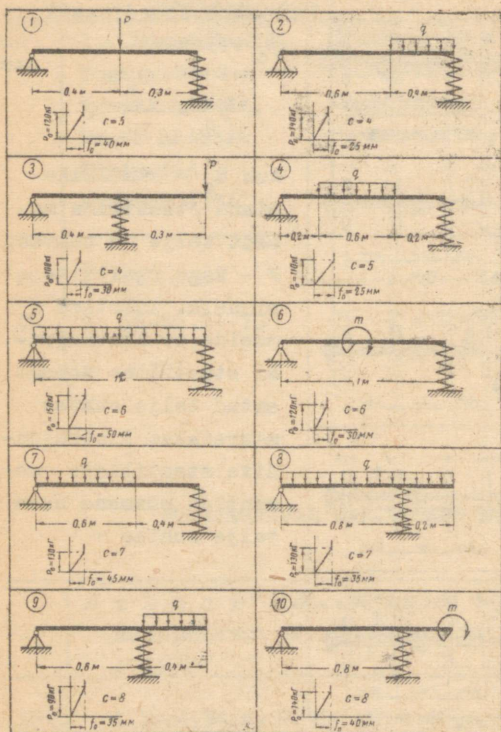 1
P
0,4 м 0,3 м
P₀=170кГ
c=5
f₀=40мм
2
q
0,6 м 0,4 м
P₀=140кГ
c=4
f₀=25мм
3
P
0,4 м 0,3 м
c=4
f₀=30мм
4
q
0,2 м 0,6 м 0,2 м
P₀=110кГ
c=5
f₀=25мм
5
q
P₀=150кГ
c=6
f₀=50мм
6
m
1м
P₀=120кГ
c=6
f₀=30мм
7
q
0,6 м 0,4 м
P₀=130кГ
c=7
f₀=45мм
8
q
0,8 м 0,2 м
P₀=130кГ
c=7
f₀=35мм
9
q
0,4 м
P₀=90кГ
c=8
f₀=35мм
10
m
0,8 м
P₀=140кГ
c=8
f₀=40мм